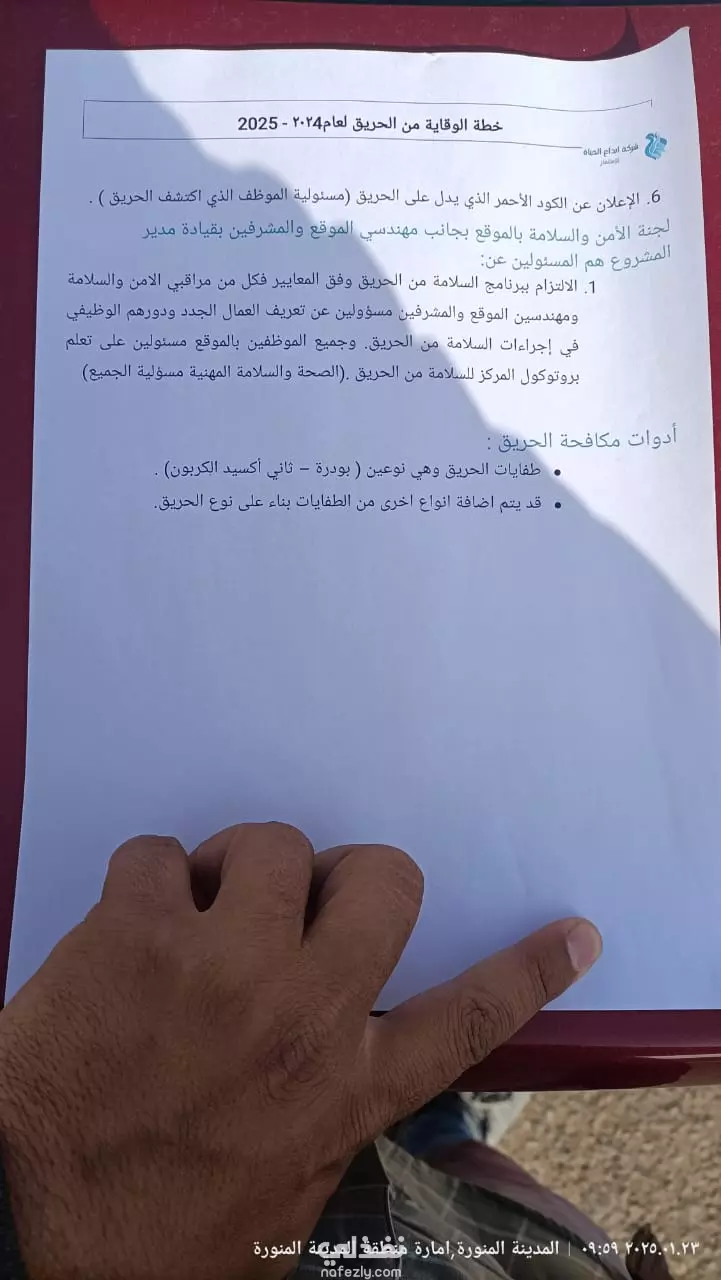 خطة الوقاية من الحريق لعام٢٠٢4 - 2025
شركة ابداع الحياة
للاستثمار
6. الإعلان عن الكود الأحمر الذي يدل على الحريق (مسئولية الموظف الذي اكتشف الحريق ) .
لجنة الأمن والسلامة بالموقع بجانب مهندسي الموقع والمشرفين بقيادة مدير
المشروع هم المسئولين عن:
1. الالتزام ببرنامج السلامة من الحريق وفق المعايير فكل من مراقبي الامن والسلامة
ومهندسين الموقع والمشرفين مسؤولين عن تعريف العمال الجدد ودورهم الوظيفي
في إجراءات السلامة من الحريق. وجميع الموظفين بالموقع مسئولين على تعلم
بروتوكول المركز للسلامة من الحريق .(الصحة والسلامة المهنية مسؤلية الجميع)
أدوات مكافحة الحريق :
• طفايات الحريق وهي نوعين ( بودرة – ثاني أكسيد الكربون) .
• قد يتم اضافة انواع اخرى من الطفايات بناء على نوع الحريق.
المدينة المنورة,إمارة منطقة المدينة المنورة | ٢٠٢٥.٠١.٢٣ ٠٩:٥٩
نفذلي
nafezly.com